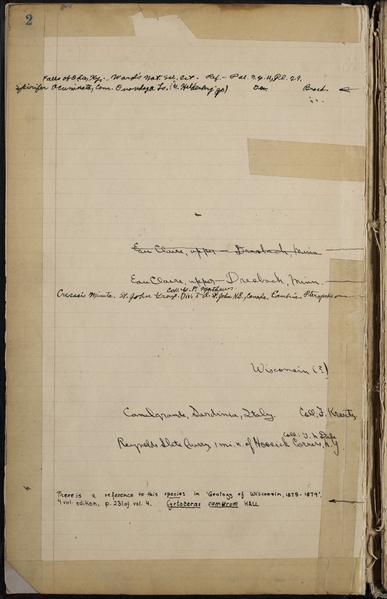 2
Falls of Ohio, Ky. - Ward's Nat. Sci. Est. Ref. - Pal. N.Y. 4, Pl. 29.
Spirifer Acuminata, Con. Onondaga Ls. (U. Helderberg gr) Brach.
Eau Claire, upper - Dresbach, Minn.
Eau Claire, upper - Dresbach, Minn.
Coll. G. F. Matthew
St. John Group. Div. St. John N.B., Canada. Cambrian
Wisconsin (?)
Canalgrande, Sardinia, Italy. Coll. F. Krantz
Coll: T. N. Dale
Reynolds Slate Quarry, 1 mi. N. of Hoosick Corners, N.Y.
There is a reference to this species in 'Geology of Wisconsin, 1873-1879',
4 vol. edition, p. 231 of vol. 4. Cyrtoceras camurum HALL